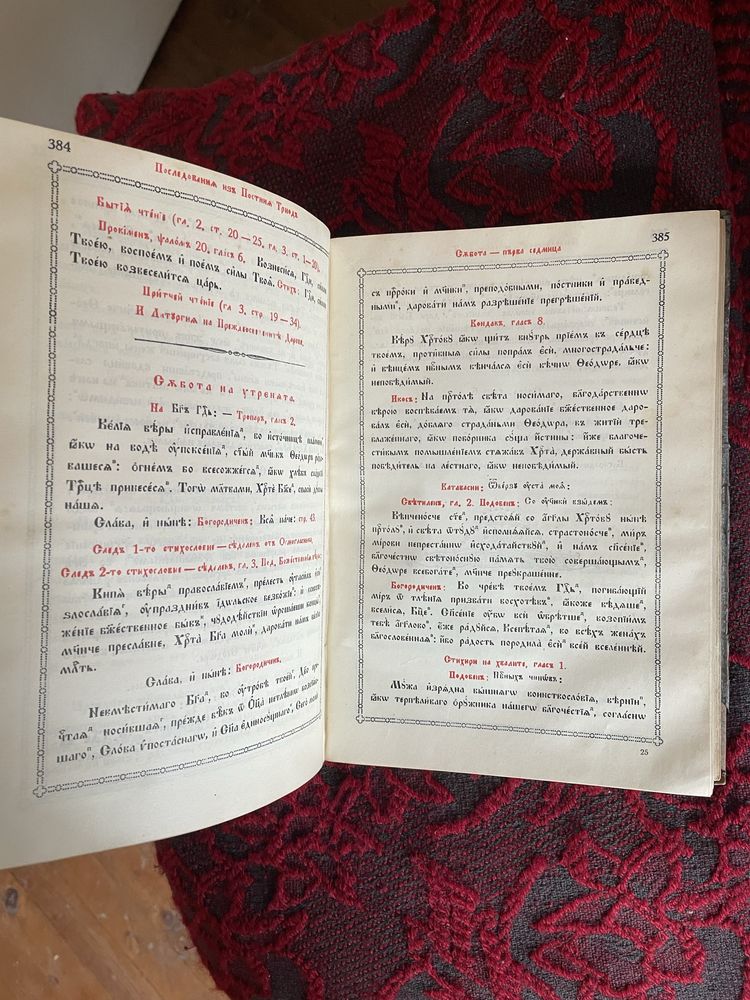 384
Последования изъ Постния Триодъ
Бытїѧ чте́нїе (гл. 2, ст. 20—25, гл. 3, ст. 1—20).
Прокі́менъ, ѱало́мъ 20, гла́съ 6. Вознеси́сѧ, Гдⷭ҇и,
Твоею́, воспоем и҆ пое́мъ си́лы Твоѧ̀. Стихъ: Гдⷭ҇и,
Твоею̀ возвесели́тсѧ ца́рь.
При́тчей чте́нїе (гл. 3, стр. 19—34).
И Литургия на Преждеосвещените Дарове.
Сѫбота на утренята.
На Бг҃ъ Гдⷭ҇ь: — Тропар, гласъ 2.
Ве́лїѧ вѣ́ры и҆справле́нїѧ, во и҆сто́чницѣ
ꙗ҆́кѡ на водѣ̀ ᲂу҆покое́нїѧ, ст҃ы́й мч҃икъ Ѳео́дѡръ
вашесѧ: ѻ҆гне́мъ бо всесожже́гсѧ, ꙗ҆́кѡ хлѣ́бъ
Трⷪ҇цѣ принесе́сѧ. Тогѡ̀ мл҃твами, Хрⷭ҇тѐ Бж҃е, спасѝ дꙋ́шы
на́шѧ.
Сла́ва, и҆ ны́нѣ: Богородиченъ: Всѧ̑ па́че: стр. 43.
Следъ 1-то стихословие — сѣделенъ отъ Осмогласника.
Следъ 2-то стихословие — сѣделенъ, гл. 3, Под.
пра́вославїемъ, пре́лесть
ѕлосла́вїѧ, ᲂу҆праздни́въ і҆́дѡльское безбо́жїе: и҆
же́нїе бжⷭ҇твенное бы́въ, чꙋдодѣ́йствїи
мч҃ниче пресла́вне, Хрⷭ҇та̀ Бг҃а молѝ, дарова́ти на́мъ ве́лїю
млⷭ҇ть.
Сла́ва, и҆ ны́нѣ: Богородиченъ.
Невмѣсти́маго Бг҃а, во ᲂу҆тро́бѣ твое́й,
носи́вшаѧ, пре́жде вѣ̑къ ѿ Ѻ҆ц҃а̀ нетлѣ́нно
шаго, Сло́ва и҆ Сн҃а є҆диносꙋ́щнаго, Є҆го́же
385
Сѫбота — първа седмица
съ прⷪ҇ро́ки и҆ мч҃ники, преподо́бными, по́стники и҆ пра́вед-
ными, дарова́ти на́мъ разрѣше́нїе прегрѣше́нїй.
Кондакъ, гласъ 8.
Вѣ́рꙋ Хрⷭ҇то́вꙋ ꙗ҆́кѡ щи́тъ внꙋ́трь прїе́мъ въ се́рдцѣ
твое́мъ, проти́вныѧ си́лы попра́лъ є҆сѝ, многострада́льче:
и҆ вѣнце́мъ нбⷭ҇нымъ вѣнча́лсѧ є҆сѝ вѣ́чнѡ Ѳео́дѡре, ꙗ҆́кѡ
непобѣди́мый.
Икосъ: На прⷭ҇то́лѣ свѣ́та носи́маго, благода́рственнѡ
вѣ́рою воспѣва́емъ тѧ̀, ꙗ҆́кѡ дарова́нїе бжⷭ҇твенное даро-
ва́лъ є҆сѝ, до́блѧго страда́ньми Ѳео́дѡра, въ житїѝ
требл҃же́ннаго, ꙗ҆́кѡ побо́рника сꙋ́ща и҆́стины: и҆́же благоче-
сти́вымъ помышле́нїемъ стѧжа́въ Хрⷭ҇та̀, держа́вный бы́сть
побѣди́тель на ле́стнаго, ꙗ҆́кѡ непобѣди́мый.
Катавасии: Ѿве́рзꙋ ᲂу҆ста̀ моѧ̑:
Свѣтиленъ, гл. 2. Подобенъ: Со ᲂу҆чн҃ки взы́демъ:
Вѣнцено́сче ст҃е, предстоѧ́й со а҆́гг҃лы Хрⷭ҇то́вꙋ ны́нѣ
прⷭ҇то́лꙋ, и҆ свѣ́та ѿтꙋ́дꙋ и҆сполнѧ́йсѧ, страстоно́сче, ми́ръ
мі́рови непреста́ннѡ и҆схода́тайствꙋй, и҆ на́мъ спⷭ҇е́нїе,
благоче́стнѡ свѣтоно́снꙋю па́мѧть твою̀ соверша́ющымъ,
Ѳео́дѡре всебога́те, мч҃ниче преꙋкраше́нне.
Богородиченъ: Во чре́вѣ твое́мъ Гдⷭ҇ь, погиба́ющїй
мі́ръ ѿ тлѣ́нїѧ призва́ти восхотѣ́въ, ꙗ҆́коже вѣ́дѧше,
всели́сѧ, Бц҃е. Сп҃се́нїе ᲂу҆̀бѡ всѝ ѡ҆брѣ́тше, возопїи́мъ
тебѣ̀ а҆́гг҃лово: є҆́же ра́дꙋйсѧ, Всепѣ́таѧ, во всѣ́хъ жена́хъ
благослове́ннаѧ: и҆́бо ра́дость породи́ла є҆сѝ все́й вселе́ннѣй.
Стихири на хвалите, гласъ 1.
Подобенъ: Нбⷭ҇ныхъ чинѡ́въ:
Мꙋ́жа и҆зрѧ́дна бы́вшаго воинствосло́вїѧ, вѣ́рнїи,
ꙗ҆́кѡ терпѣли́ваго ѻ҆рꙋ́жника на́шегѡ благоче́стїѧ, согла́снѡ
25